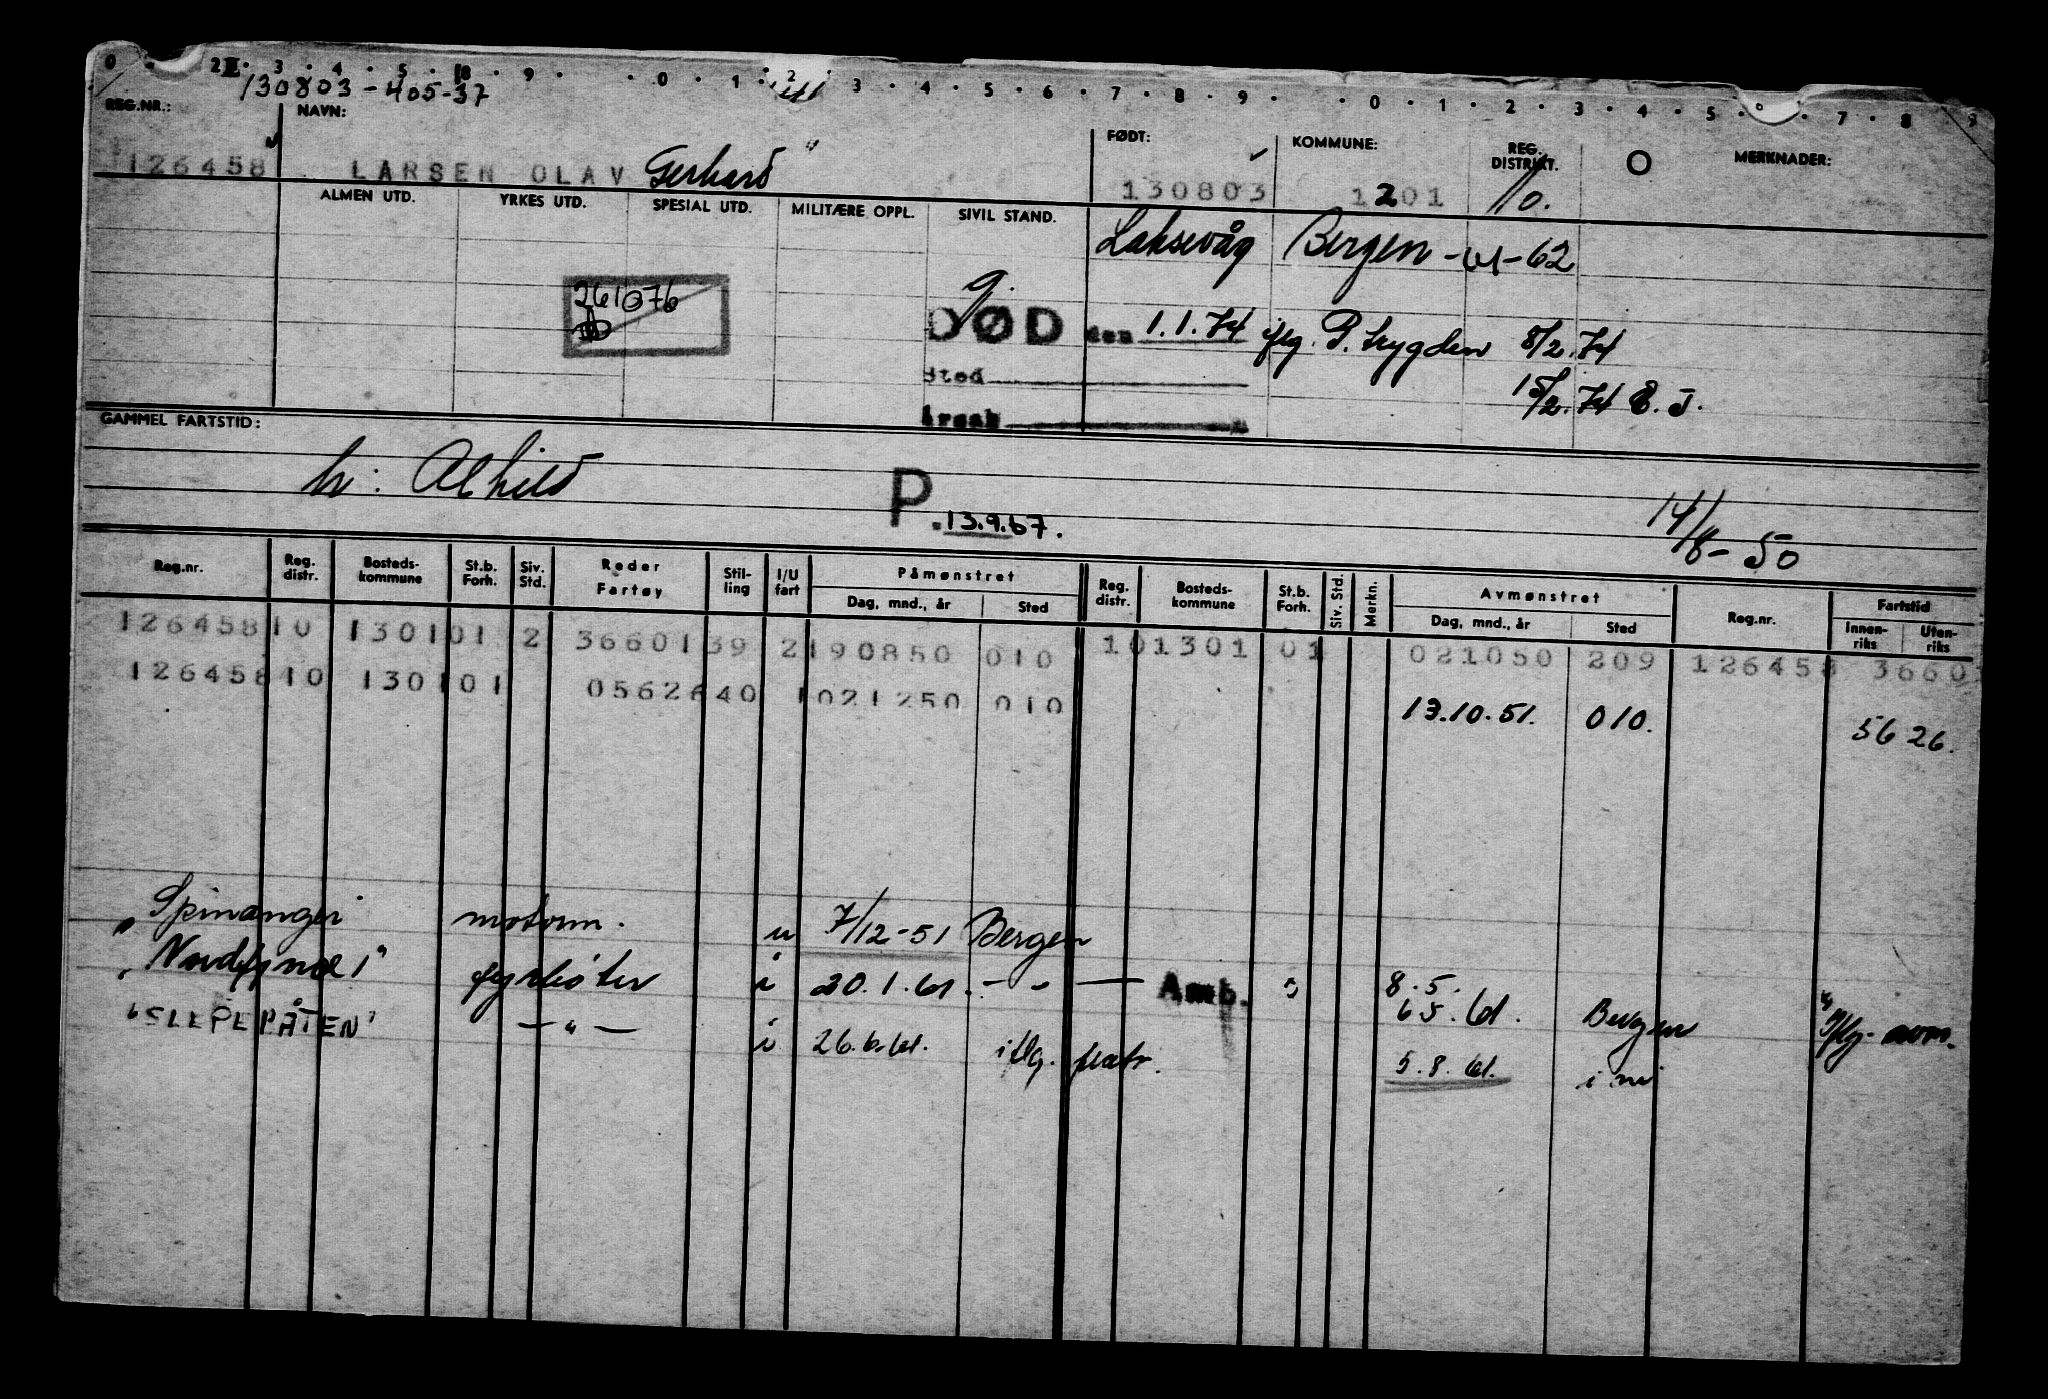 0 2 II 3 4 5 18 9 0 1 2 3 4 5 6 7 8 9 0 1 2 3 4 5 6 7 8 9
130803-405-37
REG.NR.: NAVN: FØDT: KOMMUNE: REG. DISTRIKT. O MERKNADER:
126458 LARSEN OLAV Gerhard 130803 1201 10.
ALMEN UTD. YRKES UTD. SPESIAL UTD. MILITÆRE OPPL. SIVIL STAND.
Laksevåg Bergen -61-62
261076 g.
DØD den 1.1.74 iflg. P. trygden 8/2.74
Sted 15/2.74 E.J.
Årsak
GAMMEL FARTSTID:
h: Alhild P. 13.9.67. 14/8-50
Reg.nr. Reg. distr. Bosteds-kommune St.b. Forh. Siv. Std. Reder Fartøy Stil-ling I/U fart Påmønstret Dag, mnd., år Sted Reg. distr. Bosteds-kommune St.b. Forh. Siv. Std. Merkn. Avmønstret Dag, mnd., år Sted Reg.nr. Fartstid Innen-riks Uten-riks
126458 10 1301 01 2 36601 39 2 190850 010 10 1301 01 021050 209 126458 3660
126458 10 1301 01 05626 40 1 021250 010 13.10.51. 010. 5626.
"Spinanger" motorm. u 7/12-51 Bergen
"Nordfynd 1" fyrbøter i 20.1.61. - " - Amb. 8.5.61. Bergen iflg. avm.
"SLEPEBÅTEN" - " - i 26.6.61. iflg. fratr. 5.8.61. i nv